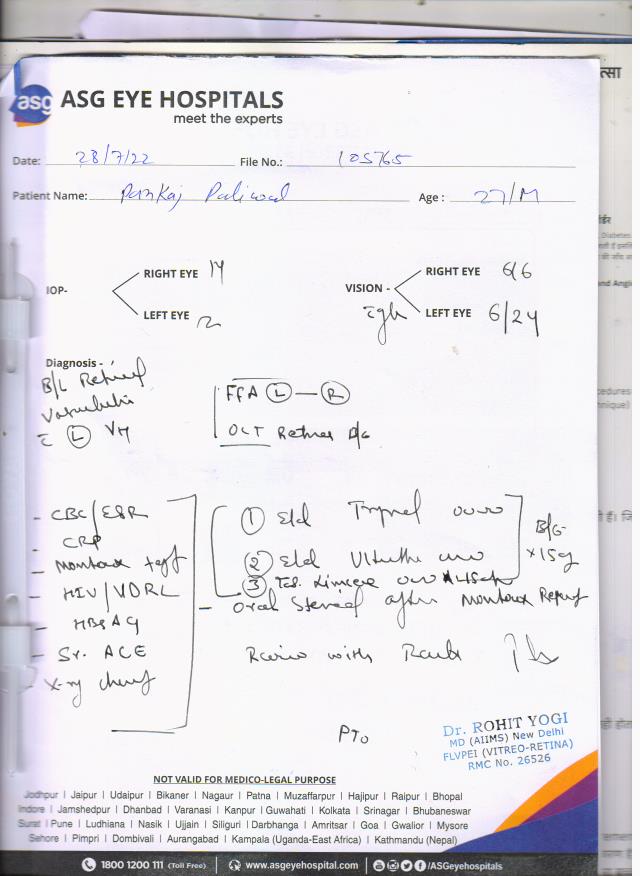 asg ASG EYE HOSPITALS
meet the experts
त्सा
Date: 28/7/22 File No.: 105765
Patient Name: Pankaj Paliwal Age: 27/M
IOP- RIGHT EYE 14
LEFT EYE 12
VISION - RIGHT EYE 6/6
LEFT EYE 6/24
Diagnosis -
B/L Retinal
Vasculitis
c̄ (L) VH
FFA (L) — (R)
OCT Retina B/E
- CBC/ESR
CRP
- Montoux test
- HIV/VDRL
- HBSAG
- Sr. ACE
- X-ray chest
① E/d
② E/d
③ Tab.
- Oral Steroid after Montoux Report
Review with
PTO
Dr. ROHIT YOGI
MD (AIIMS) New Delhi
FLVPEI (VITREO-RETINA)
RMC No. 26526
NOT VALID FOR MEDICO-LEGAL PURPOSE
Jodhpur | Jaipur | Udaipur | Bikaner | Nagaur | Patna | Muzaffarpur | Hajipur | Raipur | Bhopal
Indore | Jamshedpur | Dhanbad | Varanasi | Kanpur | Guwahati | Kolkata | Srinagar | Bhubaneswar
Surat | Pune | Ludhiana | Nasik | Ujjain | Siliguri | Darbhanga | Amritsar | Goa | Gwalior | Mysore
Sehore | Pimpri | Dombivali | Aurangabad | Kampala (Uganda-East Africa) | Kathmandu (Nepal)
1800 1200 111 (Toll Free) | www.asgeyehospital.com | /ASGeyehospitals